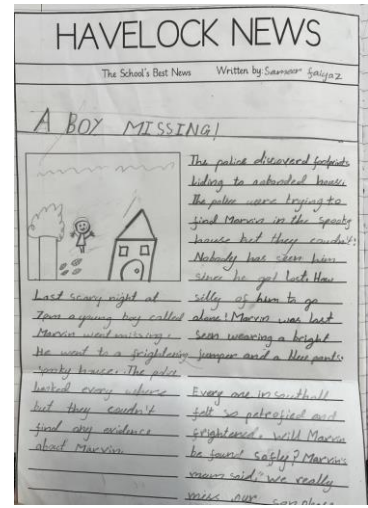 HAVELOCK NEWS
The School's Best News Written by: Samaar faiyaz
A BOY MISSING!
Last scary night at
7pm a young boy called
Marvin went missing.
He went to a frightening
spooky house. The police
looked every where
but they couldn't
find any evidence
about Marvin.
The police discoverd footprints
liding to abanded house.
The police were trying to
find Marvin in the spooky
house but they coudn't.
Nobody has seen him
since he got lost. How
silly of him to go
alone! Marvin was last
seen wearing a bright
jumper and a blue pants.
Every one in southall
felt so petrofied and
frightened. will Marvin
be found safly? Marvin's
mom said, "we really
miss our son please